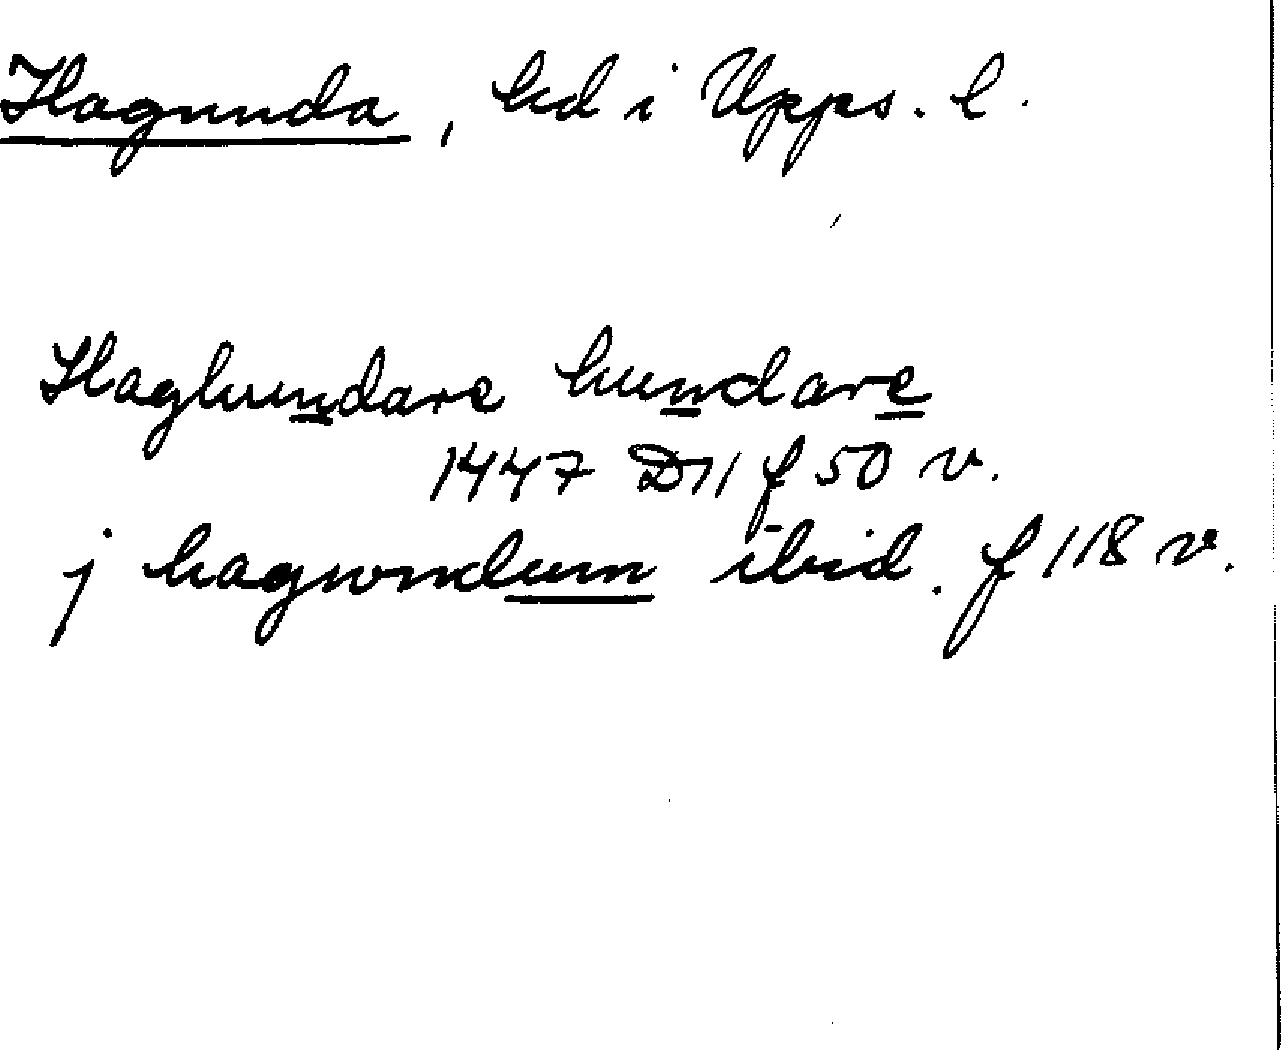 Hagunda, hd i Upps. l.
Haghundare hundare
1447 D11 f 50 v.
j hagwndum ibid. f 118 v.